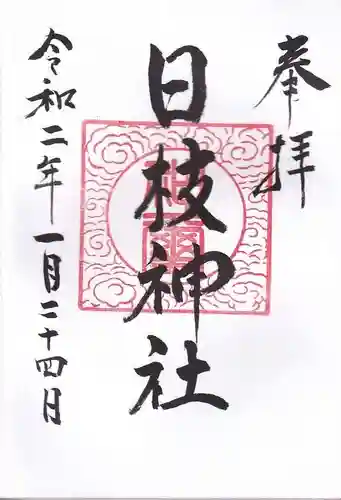 奉拝
日枝神社
令和二年一月二十四日